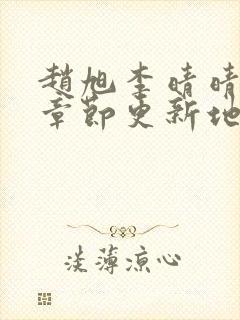 趙旭李晴晴
章節更新地
淡薄涼心